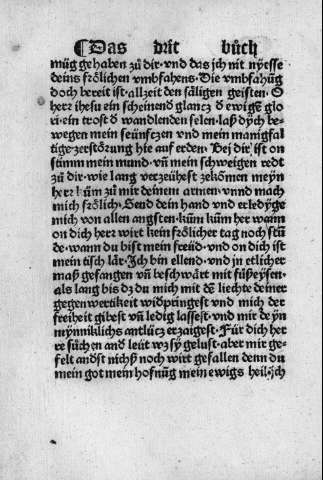 ¶ Das drit bůch
müg gehaben zů dir · vnd das jch nit nyesse
deins frölichen vmbfahens · Die vmbfahūg
doch bereit ist · allzeit den säligen geisten · O
herr ihesu ein scheinend glancz d̄ ewigē glo
ri · ein trost d̄ wandlenden selen · laß dych be-
wegen mein seünfczen vnd mein manigfal
tige · zerstörung hie auf erden · Bej dir ist on
stimm mein mund · vn̄ mein schweigen redt
zů dir · wie lang verzeühest zekōmen meyn
herr kum̄ zů mir deinem armen · vnnd mach
mich frölich · Send dein hand vnd erledyge
mich von allen angsten · kum̄ kum̄ her wann
on dich herr wirt kein frölicher tag noch stū
de · wann du bist mein freüd · vnd on dich ist
mein tisch lär · Jch bin ellend · vnd jn etlicher
maß gefangen vn̄ beschwärt mit fůßeysen ·
als lang bis dz du mich mit dē liechte deiner
gegenwertikeit widpringest vnd mich der
freiheit gibest vn̄ ledig lassest · vnd mir deyn
mynniklichs antlücz erzaigest · Für dich her
re sůchen and leüt wz sy gelust · aber mir ge-
felt andst nichß noch wirt gefallen denn du
mein got mein hofnūg mein ewigs heil · jch